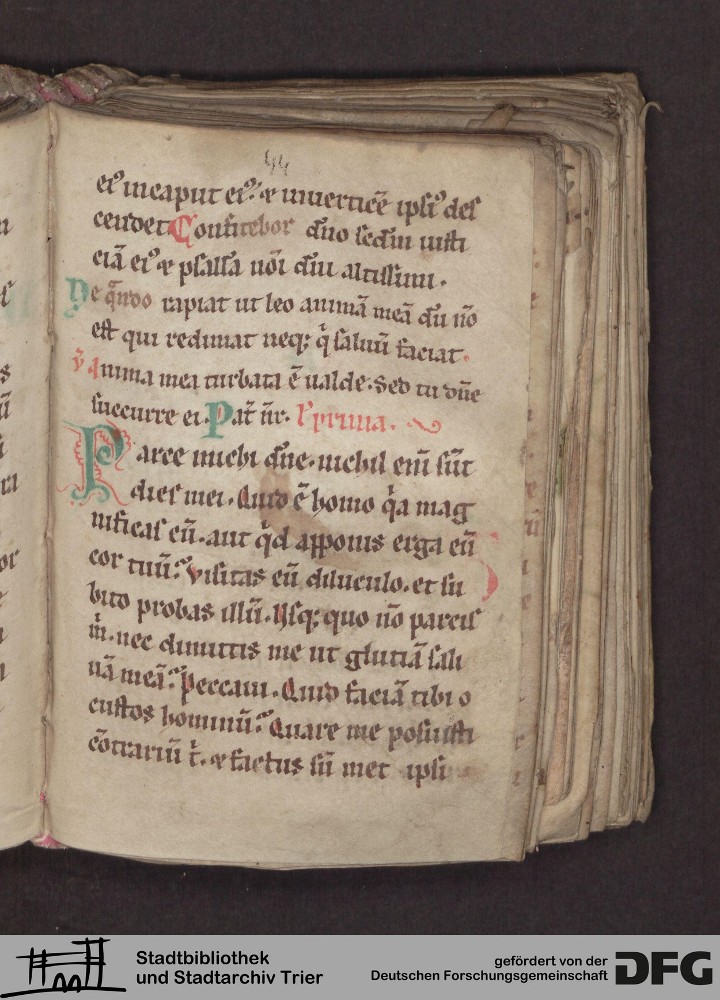 44
ei⁹ in caput ei⁹: ⁊ in uertice̅ ipsi⁹ des
cendet Confitebor dn̅o scd̅m iusti
cia̅ ei⁹ ⁊ psalla̅ no̅i dn̅i altissimi.
Ne qn̅do rapiat ut leo anima̅ mea̅ du̅ no̅
est qui redimat neq; q̅ saluu̅ faciat.
v̅ Anima mea turbata e̅ ualde. Sed tu dn̅e
succurre ei. Pat̅ nr̅.
Parce michi dn̅e. nichil eni̅ su̅t
dies mei. Quid e̅ homo q̅a mag
nificas eu̅. aut q̅d apponis erga eu̅
cor tuu̅: Visitas eu̅ diluculo. et su
bito probas illu̅. Usq; quo no̅ parcis
m̅. nec dimittis me ut glucia̅ sali
ua̅ mea̅: Peccaui. Quid facia̅ tibi o
custos hominu̅: Quare me posuisti
co̅trariu̅ t̅. ⁊ factus su̅ met ipsi
Stadtbibliothek
und Stadtarchiv Trier
gefördert von der
Deutschen Forschungsgemeinschaft
DFG